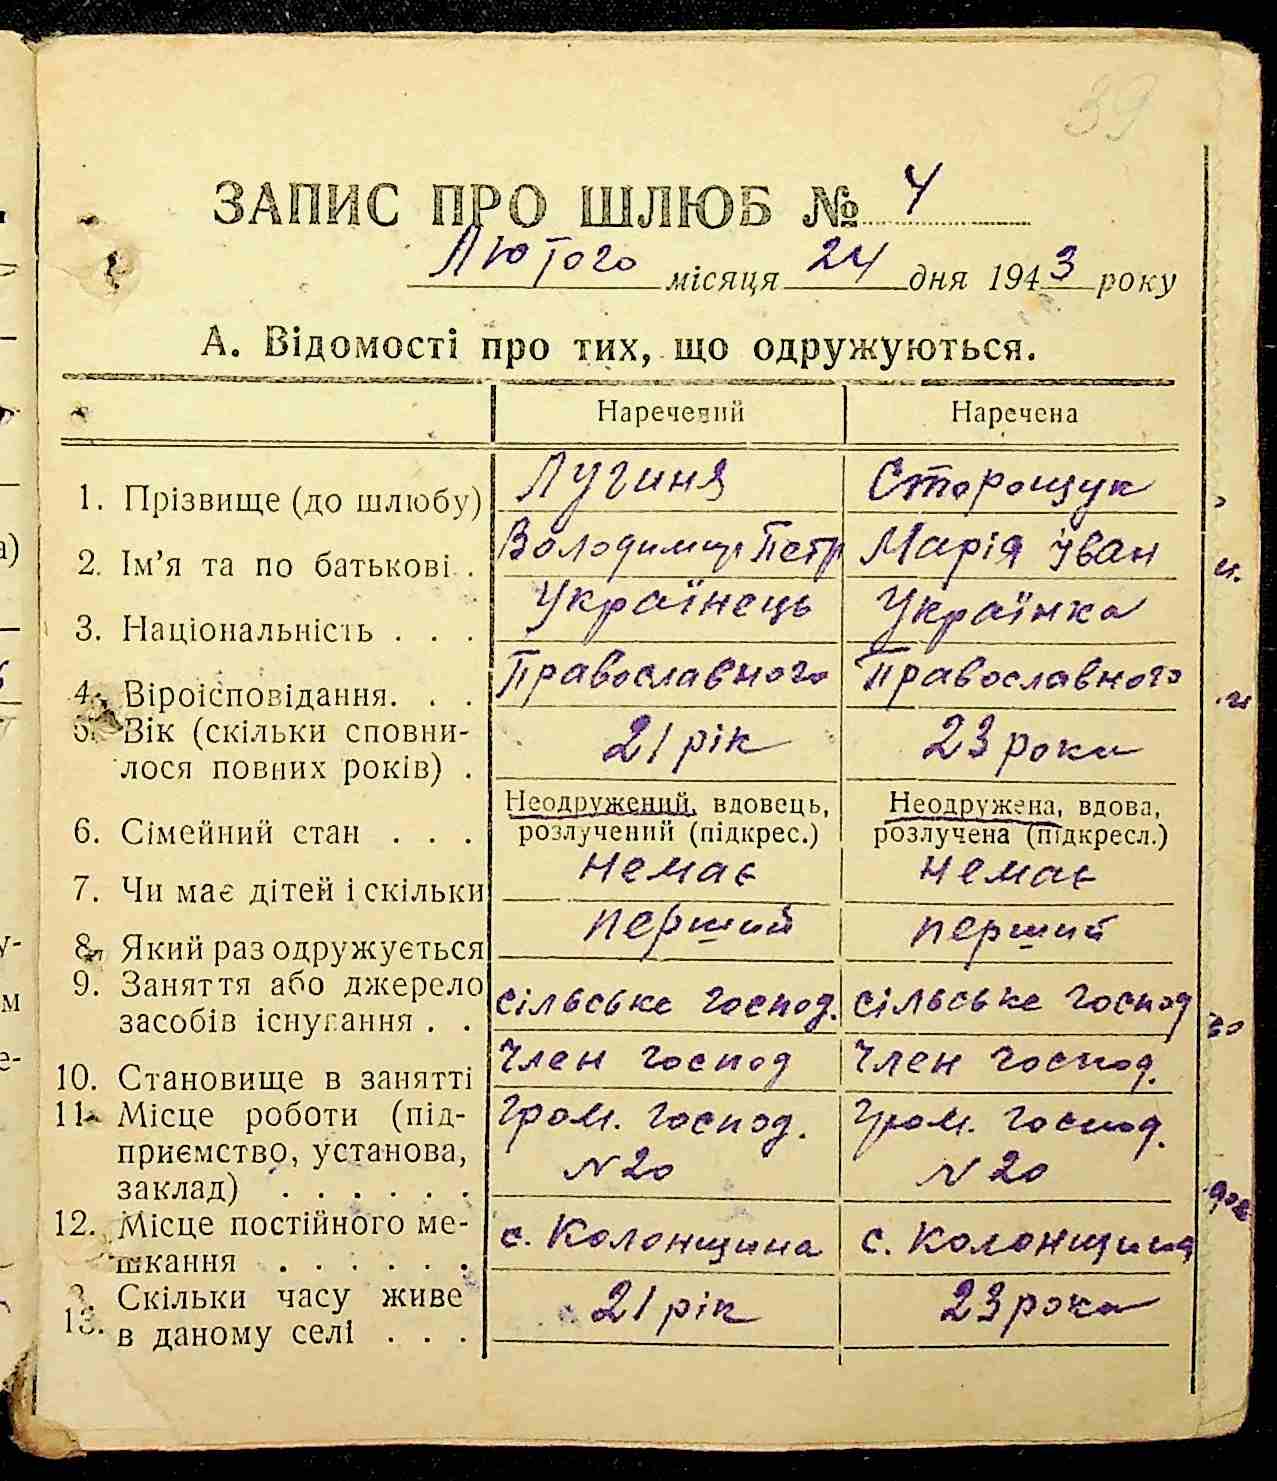 39
ЗАПИС ПРО ШЛЮБ № 4
Лютого місяця 24 дня 1943 року
А. Відомості про тих, що одружуються.
Наречений Наречена
1. Прізвище (до шлюбу) Лугиня Сторощук
2. Ім’я та по батькові . Володимир Петр Марія Іван
3. Національність . . . Українець Українка
4. Віроісповідання. . . Православного Православного
5. Вік (скільки сповни-
лося повних років) . 21 рік 23 роки
Неодружений, вдовець, Неодружена, вдова,
6. Сімейний стан . . . розлучений (підкрес.) розлучена (підкресл.)
7. Чи має дітей і скільки немає немає
8. Який раз одружується перший перший
9. Заняття або джерело
засобів існування . . сільське господ. сільське господ
10. Становище в занятті Член господ Член господ.
11. Місце роботи (під- Гром. господ. Гром. господ.
приємство, установа, N 20 N 20
заклад) . . . . . .
12. Місце постійного ме-
шкання . . . . . . с. Колонщина с. Колонщина
13. Скільки часу живе 21 рік 23 роки
в даному селі . . .